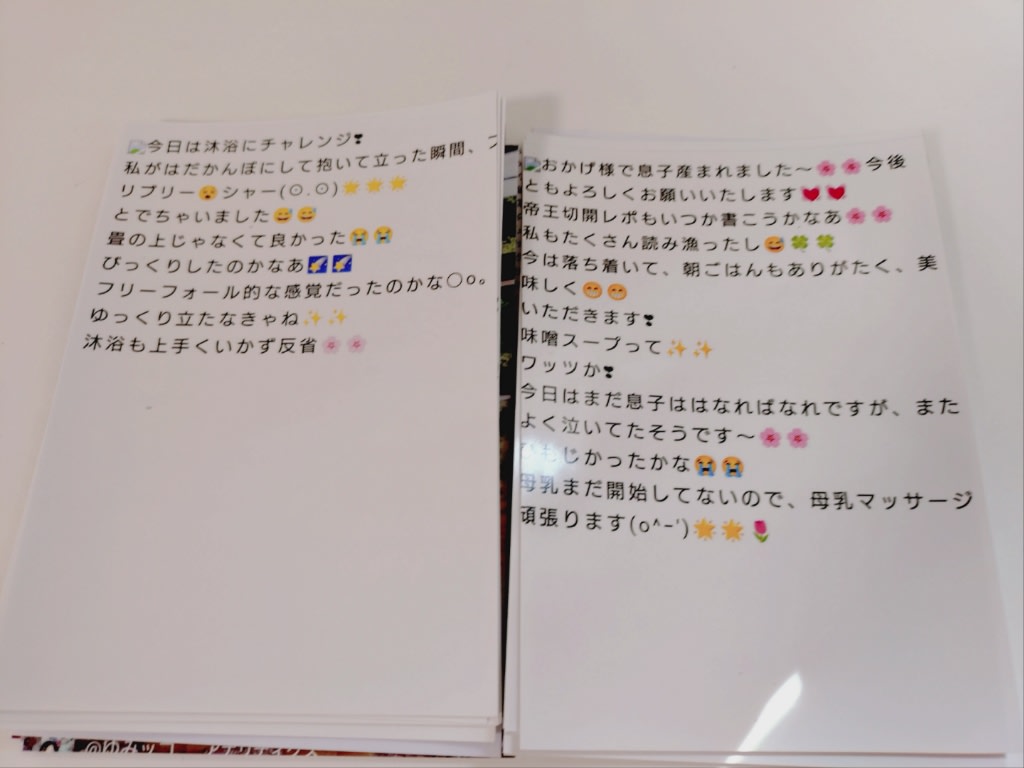 今日は沐浴にチャレンジ❣
私がはだかんぼにして抱いて立った瞬間、
リブリー😵シャー(⊙.⊙)🌟🌟🌟
とでちゃいました😅😅
畳の上じゃなくて良かった😭😭
びっくりしたのかなあ🌠🌠
フリーフォール的な感覚だったのかな○o。
ゆっくり立たなきゃね✨✨
沐浴も上手くいかず反省🌸🌸
おかげ様で息子産まれました〜🌸🌸今後
ともよろしくお願いいたします💓💓
帝王切開レポもいつか書こうかなあ🌸🌸
私もたくさん読み漁ったし😅🍀🍀
今は落ち着いて、朝ごはんもありがたく、美
味しく😁😁
いただきます❣
味噌スープって✨✨
ワッツか❣
今日はまだ息子ははなればなれですが、また
よく泣いてたそうです〜🌸🌸
ひもじかったかな😭😭
母乳まだ開始してないので、母乳マッサージ
頑張ります(o^−')🌟🌟🌷